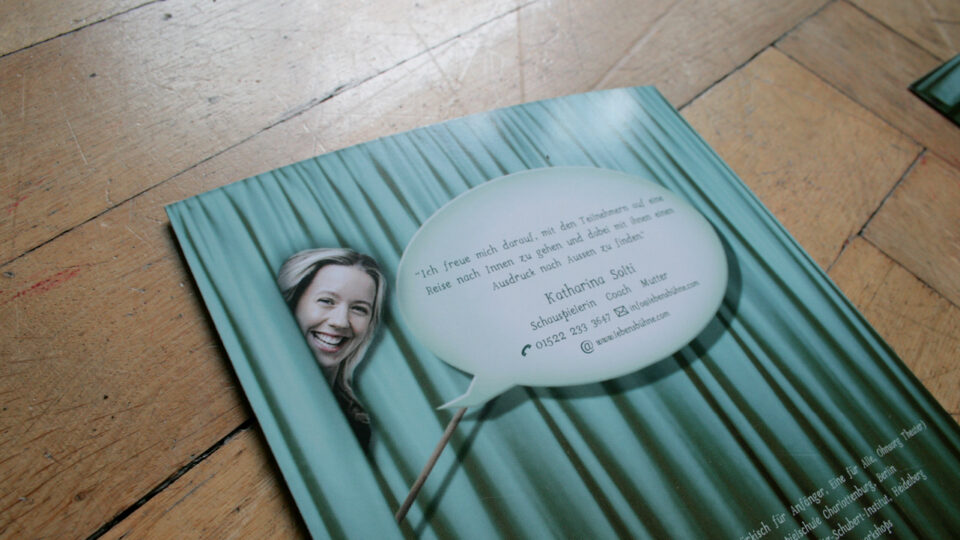 "Ich freue mich darauf, mit den Teilnehmern auf eine
Reise nach Innen zu gehen und dabei mit ihnen einen
Ausdruck nach Aussen zu finden."
Katharina Solti
Schauspielerin Coach Mutter
01522 233 3647 info@lebensbühne.com
@ www.lebensbühne.com
für Anfänger, Eine für Alle (Ohnsorg Theater)
Charlottenburg, Berlin
-Schubert-Institut, Heidelberg